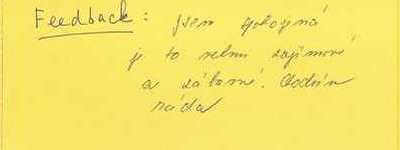 Feedback: Jsem spokojená
je to velmi zajímavé
a zábavné.
ráda